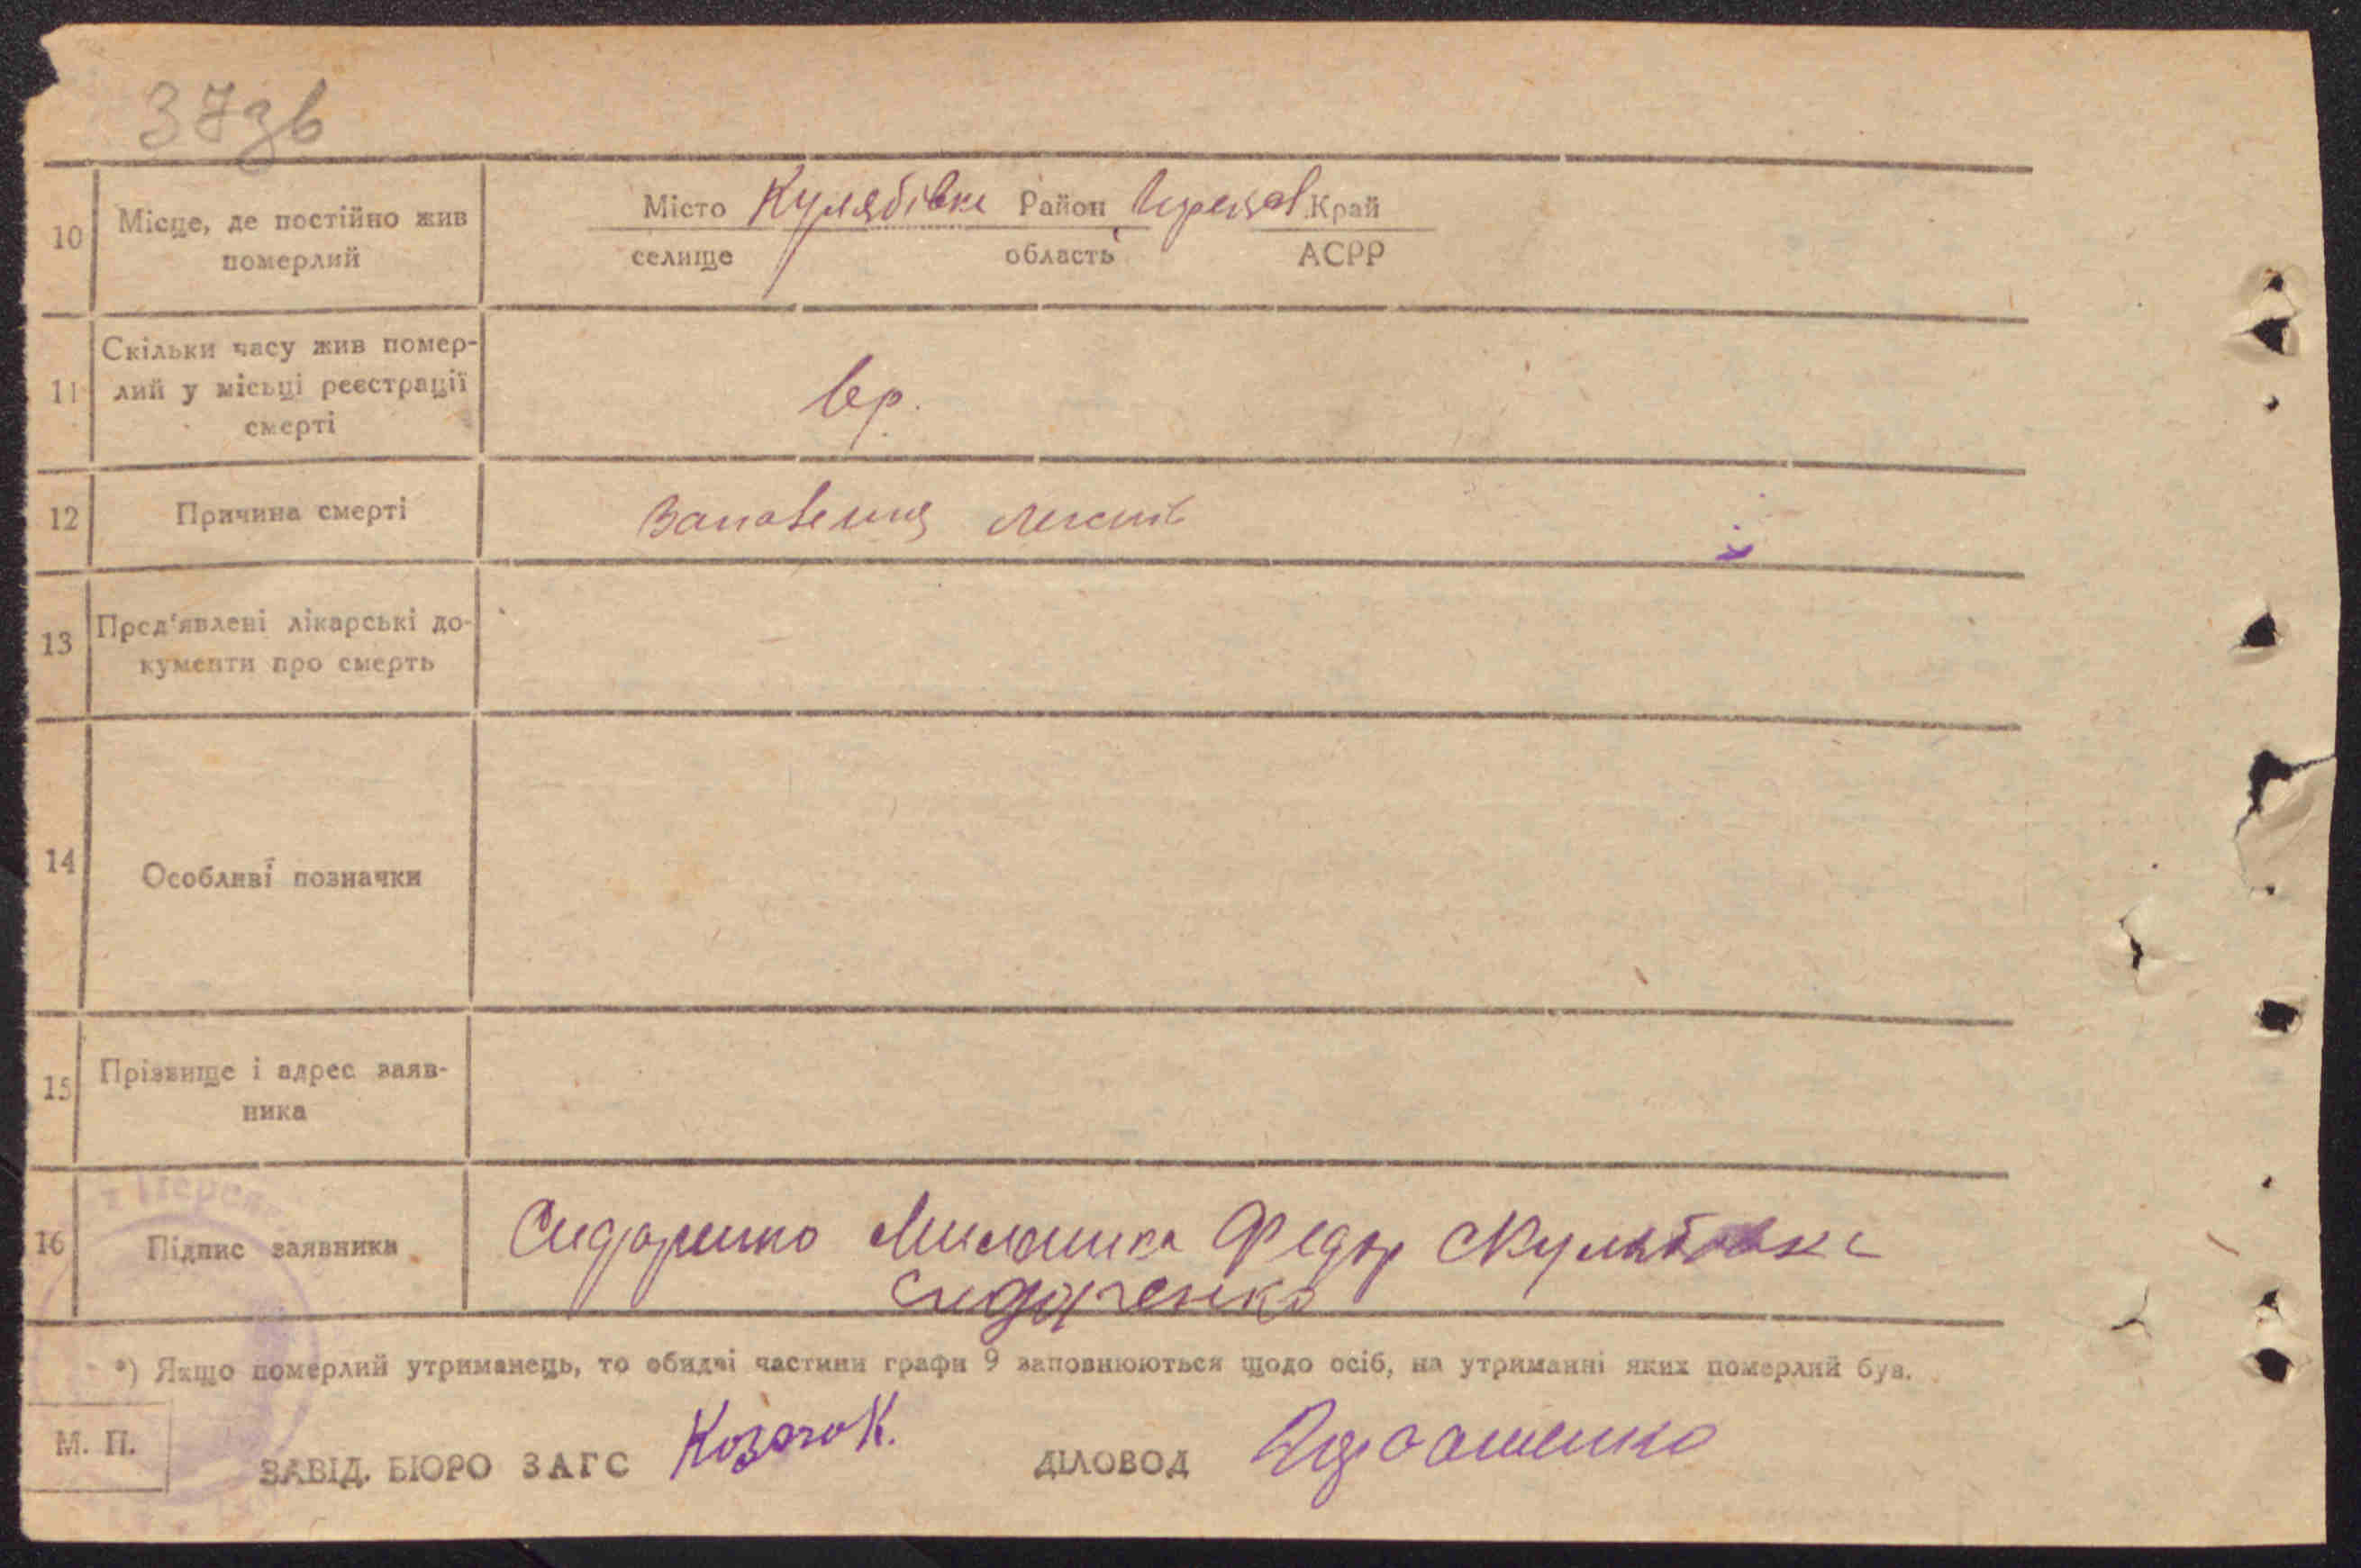 37зв
10 Місце, де постійно жив померлий
Місто Кулябівка Район Край
селище область АСРР
11 Скільки часу жив помер-
лий у місьці реєстрації
смерті
вр.
12 Причина смерті
Запаления легких
13 Пред'явлені лікарські до-
кументи про смерть
14 Особливі позначки
15 Прізвище і адрес заяв-
ника
16 Підпис заявника
Сидоренко Федор
Сидоренко
*) Якщо померлий утриманець, то обидві частини графи 9 заповнюються щодо осіб, на утриманні яких померлий був.
М. П.
ЗАВІД. БЮРО ЗАГС Козачок. ДІЛОВОД